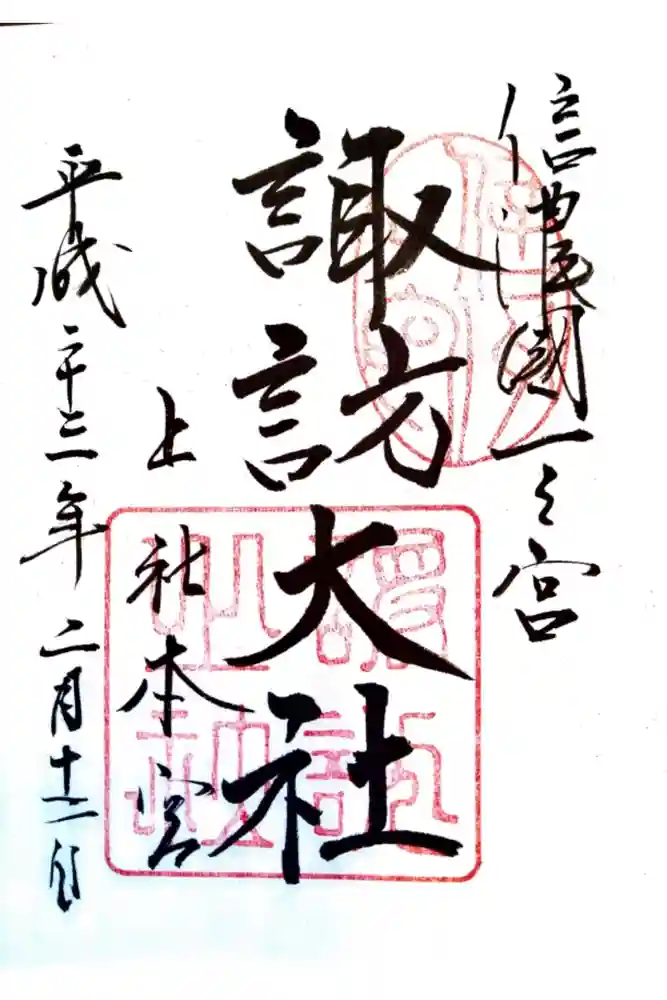 信濃國一之宮
諏訪大社
上社本宮
平成二十三年二月十二日